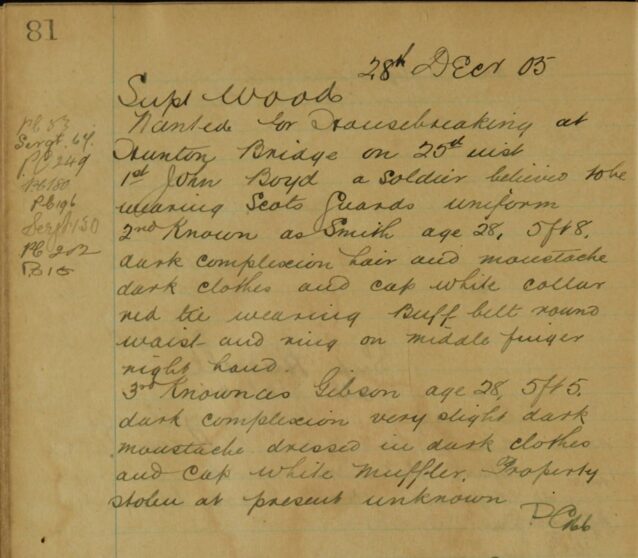 81
28th Decr 05
Supt Wood
Wanted for Housebreaking at
Hunton Bridge on 25th inst
1st John Boyd a Soldier believed to be
wearing Scots Guards uniform
2nd Known as Smith age 28, 5ft 8,
dark complexion hair and moustache
dark clothes and cap white collar
red tie wearing Buff belt round
waist and ring on middle finger
right hand.
3rd Known as Gibson age 28, 5ft 5.
dark complexion very slight dark
moustache dressed in dark clothes
and cap white Muffler. Property
stolen at present unknown
PC 166
PC 83
Sergt. 64.
PC 249
PC 180
PC 196
Sergt 150
PC 202